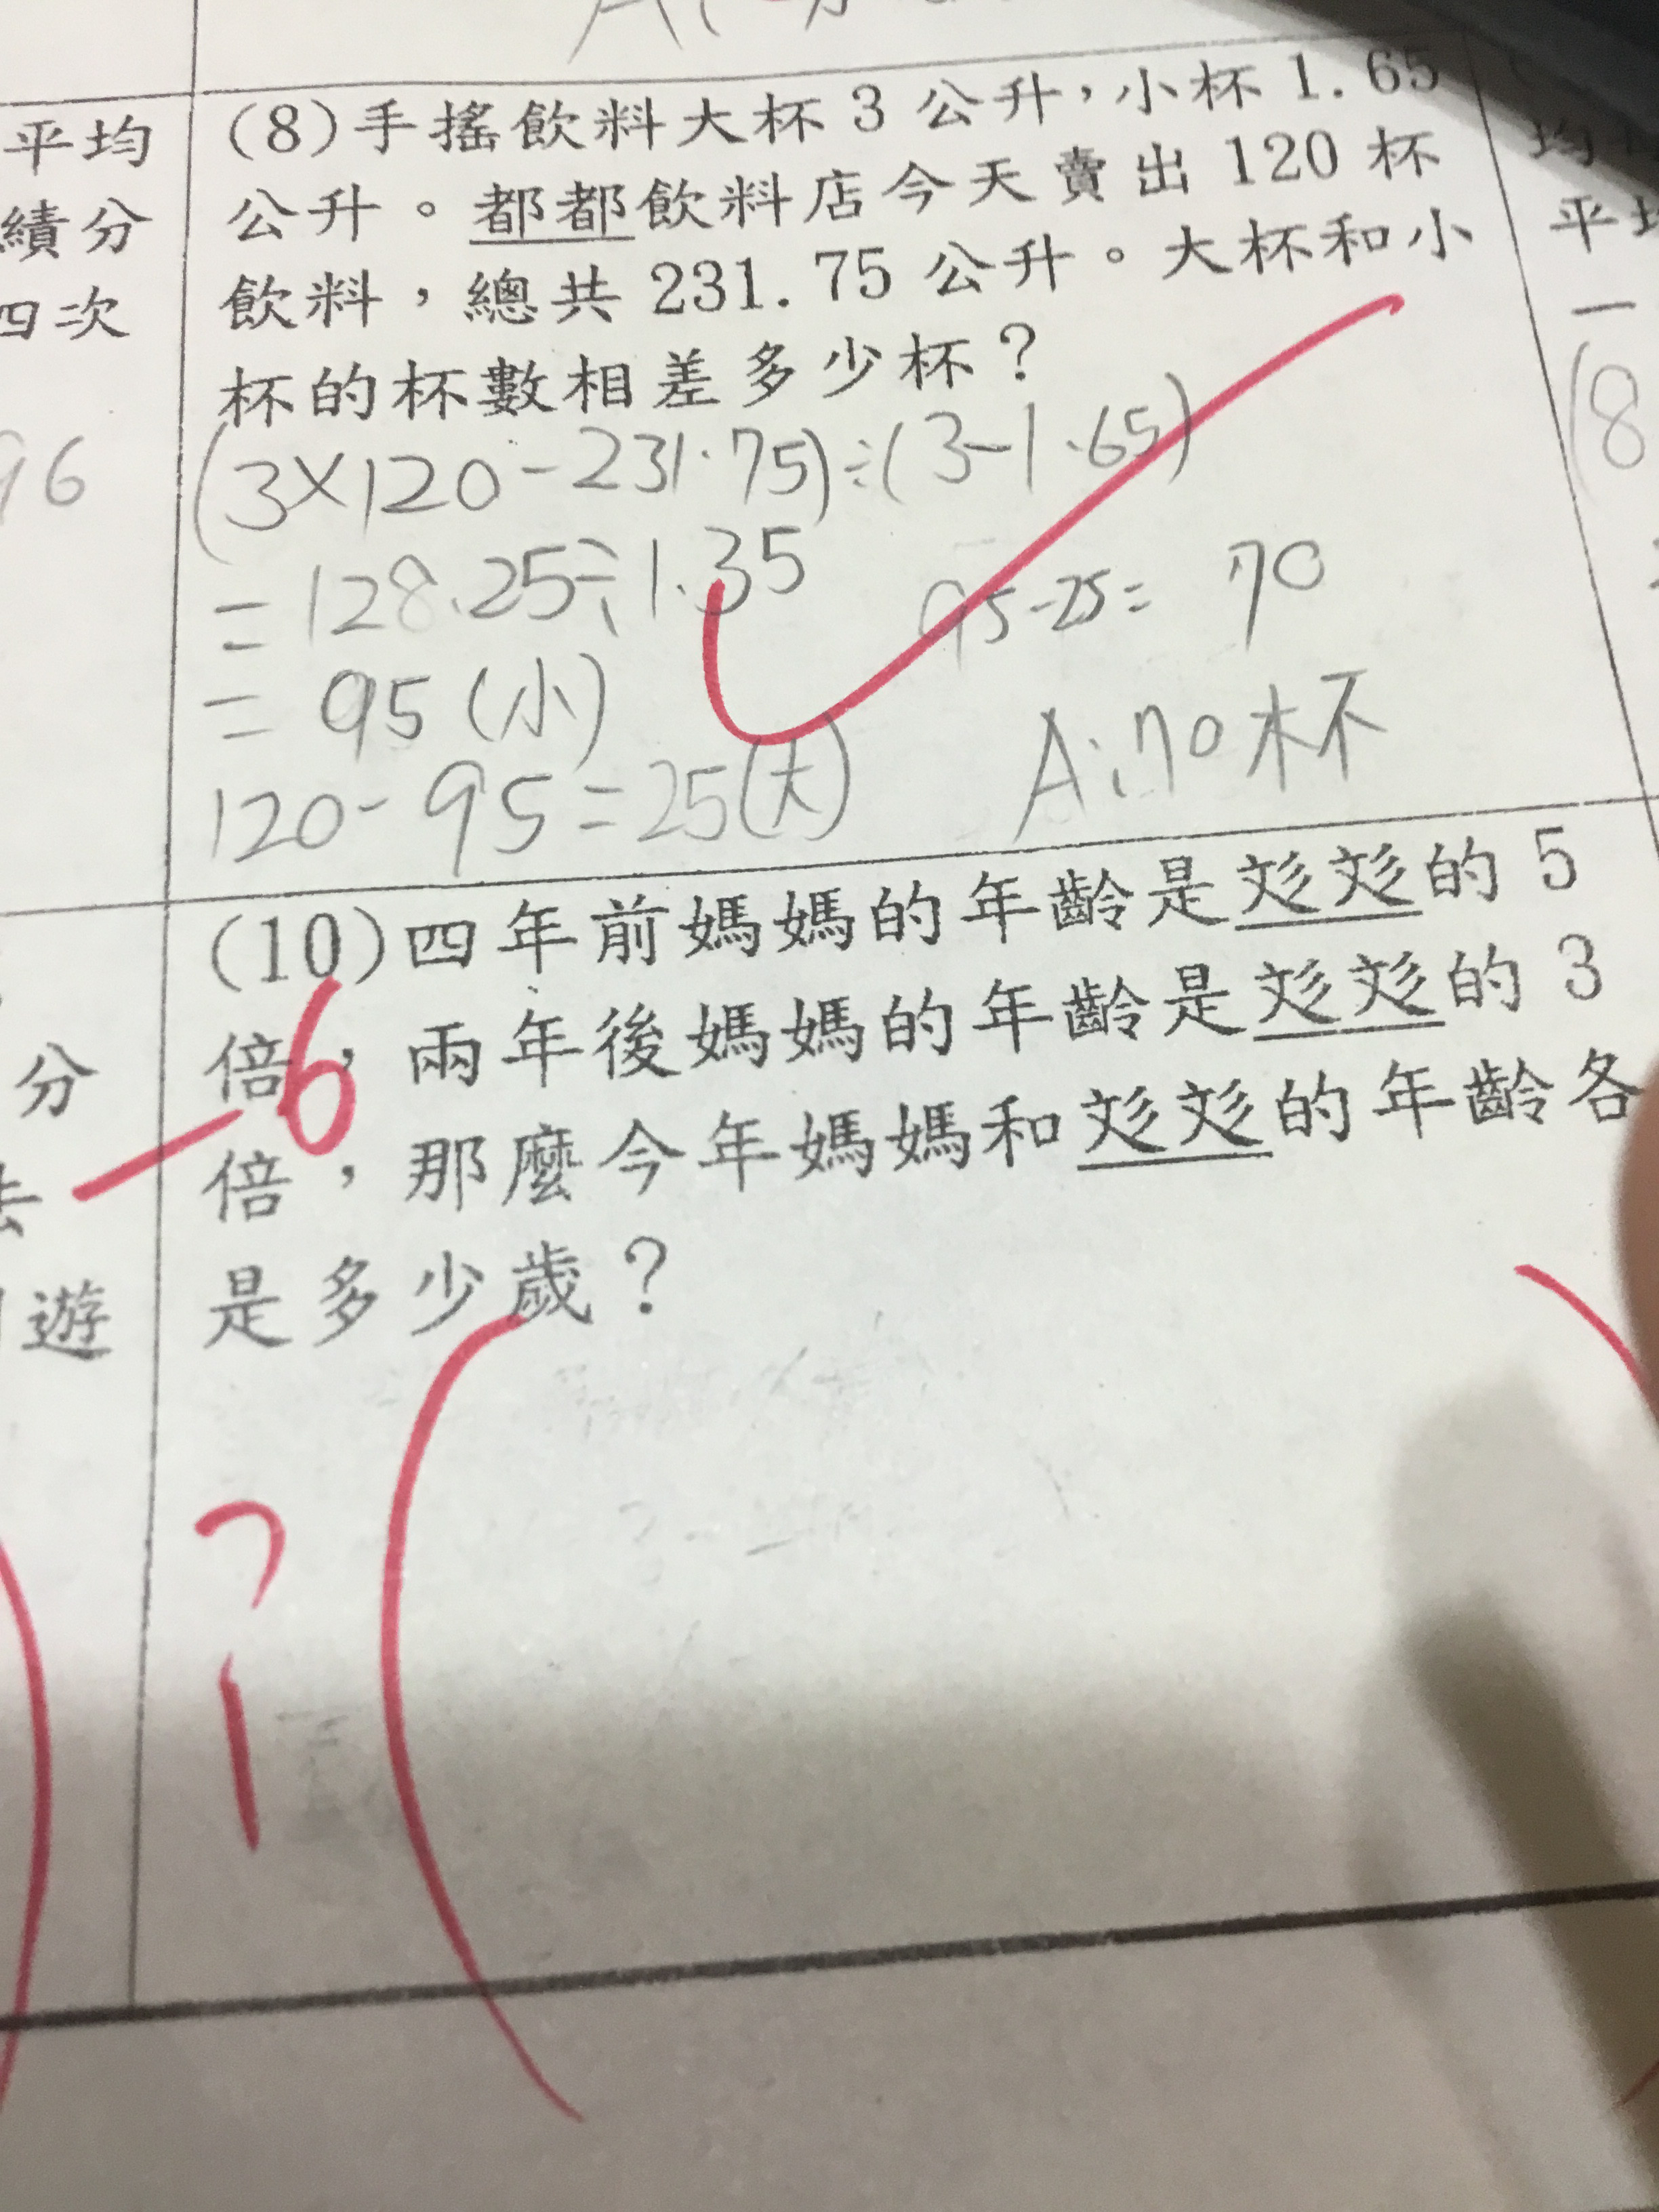 平均
績分
四次
96
(8)手搖飲料大杯 3 公升，小杯 1.65
公升。都都飲料店今天賣出 120 杯
飲料，總共 231.75 公升。大杯和小
杯的杯數相差多少杯？
(3×120-231.75)÷(3-1.65)
=128.25÷1.35
=95(小)
120-95=25(大)
95-25= 70
A:70杯
平均
一
(8
分
法
遊
-6
(10)四年前媽媽的年齡是彣彣的 5
倍，兩年後媽媽的年齡是彣彣的 3
倍，那麼今年媽媽和彣彣的年齡各
是多少歲？